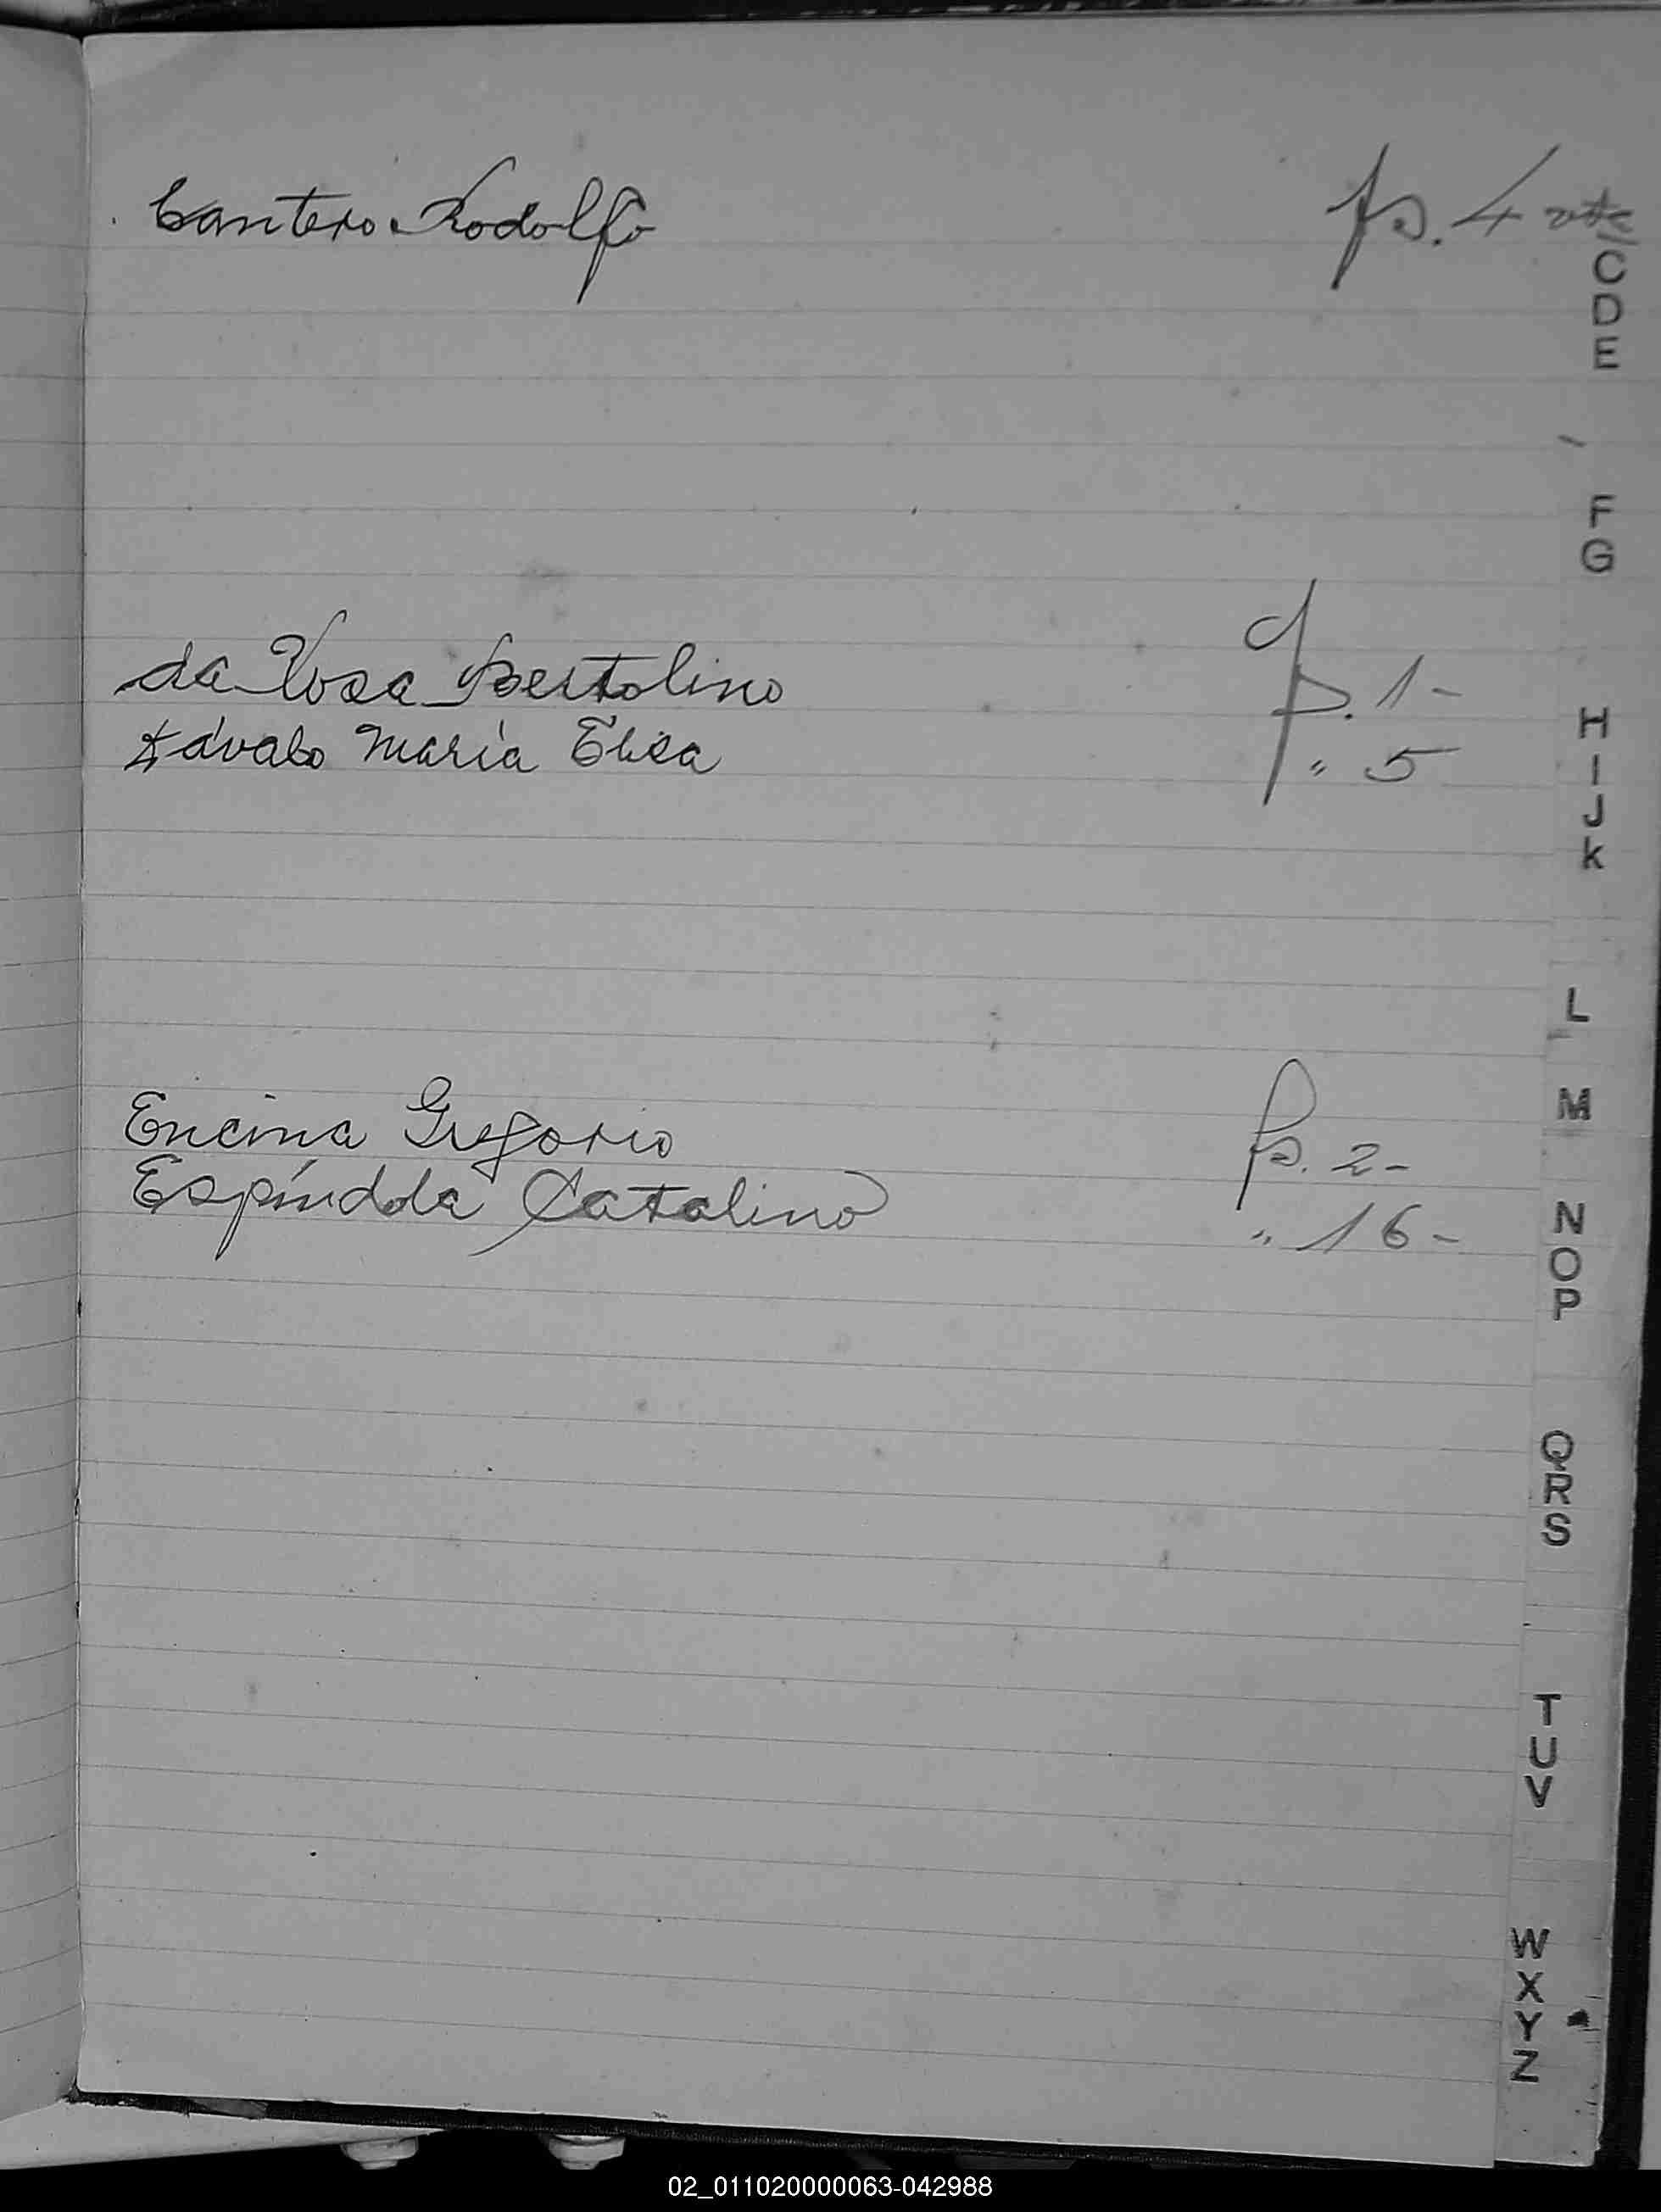 Cantero Rodolfo fs. 4 vta
C
D
E
F
G
da Rosa Bertolino fs. 1-
Dávalo María Elisa " 5
H
I
J
K
L
M
Encina Gregorio fs. 2-
Espíndola Catalino " 16-
N
O
P
Q
R
S
T
U
V
W
X
Y
Z
02_011020000063-042988